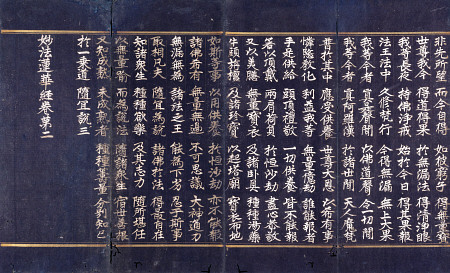 非先所望 而今自得 如彼窮子 得無量寶
世尊我今 得道得果 於無漏法 得清淨眼
我等長夜 持佛淨戒 始於今日 得其果報
法王法中 久修梵行 今得無漏 無上大果
我等今者 真是聲聞 以佛道聲 令一切聞
我等今者 真阿羅漢 於諸世間 天人魔梵
普於其中 應受供養 世尊大恩 以希有事
憐愍教化 利益我等 無量億劫 誰能報者
手足供給 頭頂禮敬 一切供養 皆不能報
若以頂戴 兩肩荷負 於恒沙劫 盡心恭敬
又以美饍 無量寶衣 及諸臥具 種種湯藥
牛頭栴檀 及諸珍寶 以起塔廟 寶衣布地
如斯等事 以用供養 於恒沙劫 亦不能報
諸佛希有 無量無邊 不可思議 大神通力
無漏無為 諸法之王 能為下劣 忍于斯事
取相凡夫 隨宜為說 諸佛於法 得最自在
知諸眾生 種種欲樂 及其志力 隨所堪任
以無量喻 而為說法 隨諸眾生 宿世善根
又知成熟 未成熟者 種種籌量 分別知已
於一乘道 隨宜說三
妙法蓮華經卷第二